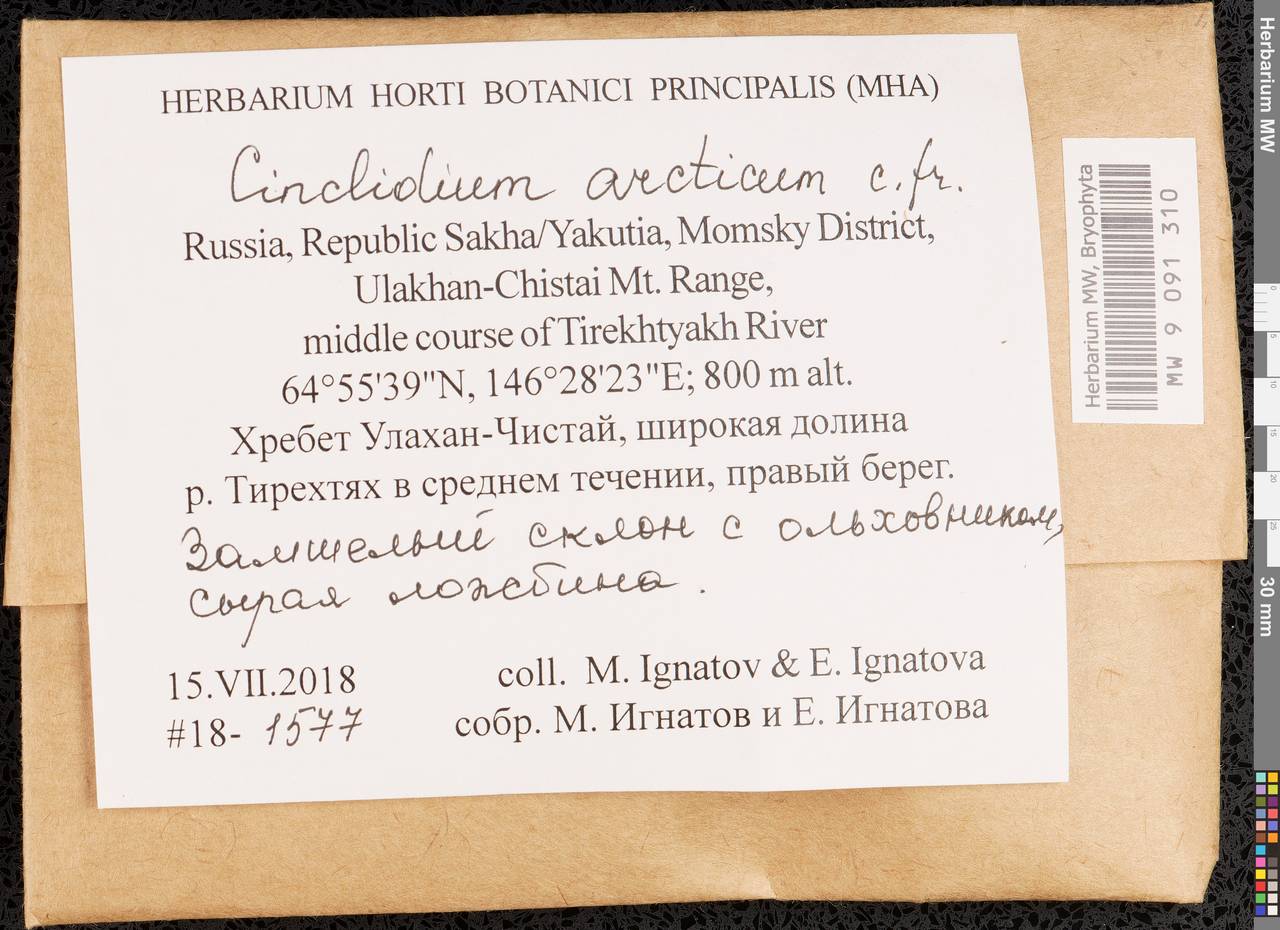 HERBARIUM HORTI BOTANICI PRINCIPALIS (MHA)
Cinclidium arcticum c. fr.
Russia, Republic Sakha/Yakutia, Momsky District,
Ulakhan-Chistai Mt. Range,
middle course of Tirekhtyakh River
64°55'39"N, 146°28'23"E; 800 m alt.
Хребет Улахан-Чистай, широкая долина
р. Тирехтях в среднем течении, правый берег.
Замшелый склон с ольховником,
сырая ложбина.
15.VII.2018
#18- 1577
coll. M. Ignatov & E. Ignatova
собр. М. Игнатов и Е. Игнатова
Herbarium MW, Bryophyta
MW 9 091 310
Herbarium MW
0
5
10
15
20
25
30 mm